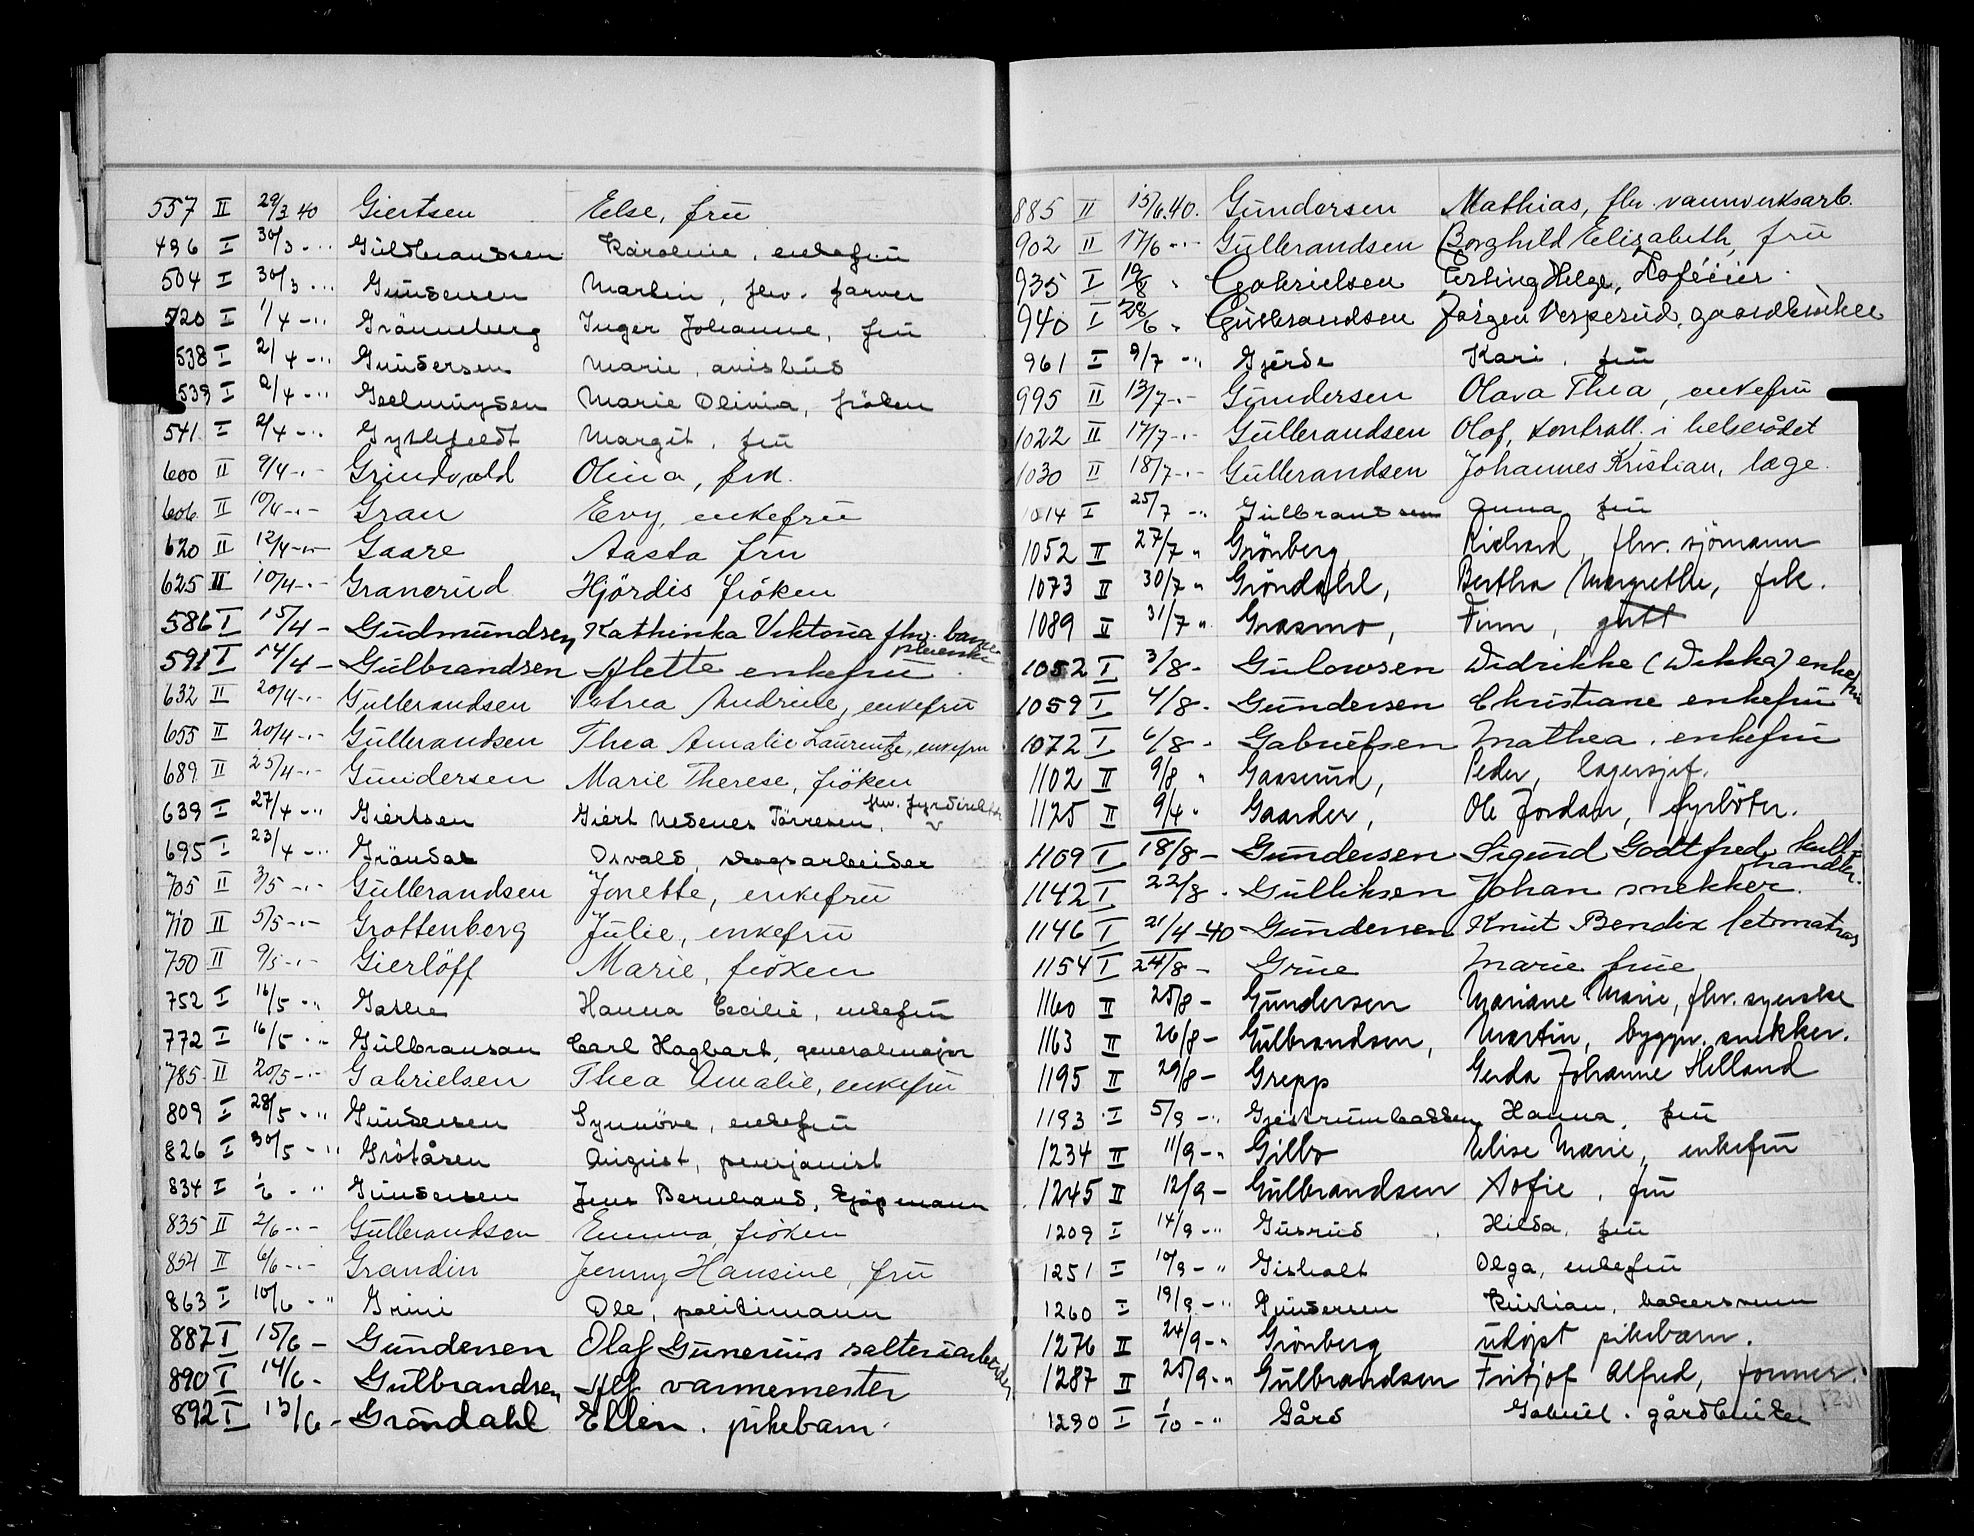 557 II 29/3 40 Giertsen Else, frü
496 I 30/3 -"- Güldbrandsen Karoline, enkefrü
504 I 30/3 -"- Gündersen Martin, fhv. farver
520 I 1/4 -"- Grönneberg Inger Johanne, frü
538 I 2/4 -"- Gündersen Marie, avisbüd
539 I 2/4 -"- Geelmüyden Marie Olivia, fröken
541 I 2/4 -"- Gyldefeldt Margit, frü
600 II 9/4 -"- Grindvold Olina, frk.
606 II 10/4 -"- Gran Evy, enkefrü
620 II 12/4 -"- Gaare Aasta frü
625 II 10/4 -"- Granerüd Hjördis fröken
586 I 15/4 - Güdmündsen Kathinka Viktoria fhv. barnepleierske
591 I 14/4 - Gülbrandsen Alette enkefrü
632 II 20/4 -"- Gülbrandsen Petrea Andrine, enkefrü
655 II 20/4 -"- Gülbrandsen Thea Amalie Laurentze, enkefrü
689 II 25/4 -"- Gündersen Marie Therese, fröken
639 I 27/4 -"- Giertsen Giert Nedenes Törresen, fhv. fyrdirektör
695 I 23/4 -"- Gröndal Osvald, skogsarbeider
705 II 3/5 -"- Gülbrandsen Jonette, enkefrü
710 II 5/5 -"- Grottenberg Jülie, enkefrü
750 II 9/5 -"- Gierlöff Marie, fröken
752 I 16/5 -"- Hanna Cecilie, enkefrü
772 I 16/5 -"- Gülbranson Carl Hagbart, generalmajor
785 II 20/5 -"- Gabrielsen Thea Amalie, enkefrü
809 I 28/5 -"- Gündersen Synnöve, enkefrü
826 I 30/5 -"- Grötåsen Aügüst, pensjonist
834 I 1/6 -"- Gündersen Jens Bernhard, kjöpmann
835 II 2/6 -"- Gülbrandsen Emma, fröken
854 II 6/6 -"- Grandin Jenny Hansine, frü
863 I 10/6 -"- Grini Ole, politimann
887 I 15/6 - Gündersen Olaf Günerius salteriarbeider
890 I 14/6 - Gülbrandsen Alf varmemester
892 I 13/6 - Gröndahl Ellen. pikebarn
885 II 15/6 40. Gündersen Mathias, fhv. vannverksarb.
902 II 17/6 -"- Gülbrandsen Borghild Elizabeth, frü
935 I 19/8 " Gabrielsen Erling Helge,
940 I 28/6 " Gülbrandsen Jörgen Vesperüd, gaardbrüker
961 I 9/7 -"- Gjerde Kari, frü
995 II 13/7 -"- Gündersen Olava Thea, enkefrü
1022 II 17/7 -"- Gülbrandsen Olof, kontroll. i helserådet
1030 II 18/7 -"- Gülbrandsen Johannes Kristian, læge.
1014 I 25/7 -"- Gülbrandsen Anna frü
1052 II 27/7 " Grönberg, Richard, fhv. sjömann
1073 II 30/7 " Gröndahl, Bertha Margrethe, frk.
1089 II 31/7 " Grasmo, Finn, gütt
1052 I 3/8 - Gülowsen Didrikke (Dikka) enkefrü
1059 I 4/8 - Gündersen Christiane enkefrü
1072 I 6/8 - Gabrielsen Mathea. enkefrü
1102 II 9/8 " Gaaserüd, Peder, lagersjef.
1125 II 9/4 " Gaarder, Ole Jordan, fyrböter.
1109 I 18/8 - Gündersen Sigürd Godtfred kullhandler.
1142 I 22/8 - Gülliksen Johan snekker.
1146 I 21/4 -40 Gündersen Knüt Bendix letmatros
1154 I 24/8 - Grüe Marie früe
1160 II 25/8 - Gündersen Mariane Marie, fhv. syerske
1163 II 26/8 - Gülbrandsen, Martin, byggn. snekker.
1195 II 29/8 - Grepp Gerda Johanne Helland
1193 I 5/9 -"- Gjestrümbakken Hanna, frü
1234 II 11/9 -"- Gilbo Elise Marie, enkefrü
1245 II 12/9 - Gülbrandsen Sofie, frü
1209 I 14/9 -"- Güsrüd Hilda, frü
1251 I 10/9 -"- Gisholt Olga, enkefrü
1260 I 19/9 -"- Gündersen Kristian, bakersvenn
1276 II 24/9 -"- Grönberg üdöpt pikebarn.
1287 II 25/9 -"- Gülbrandsen Fritjof Alfred, former.
1290 I 1/10 -"- Gård Gabriel. gårdbrüker